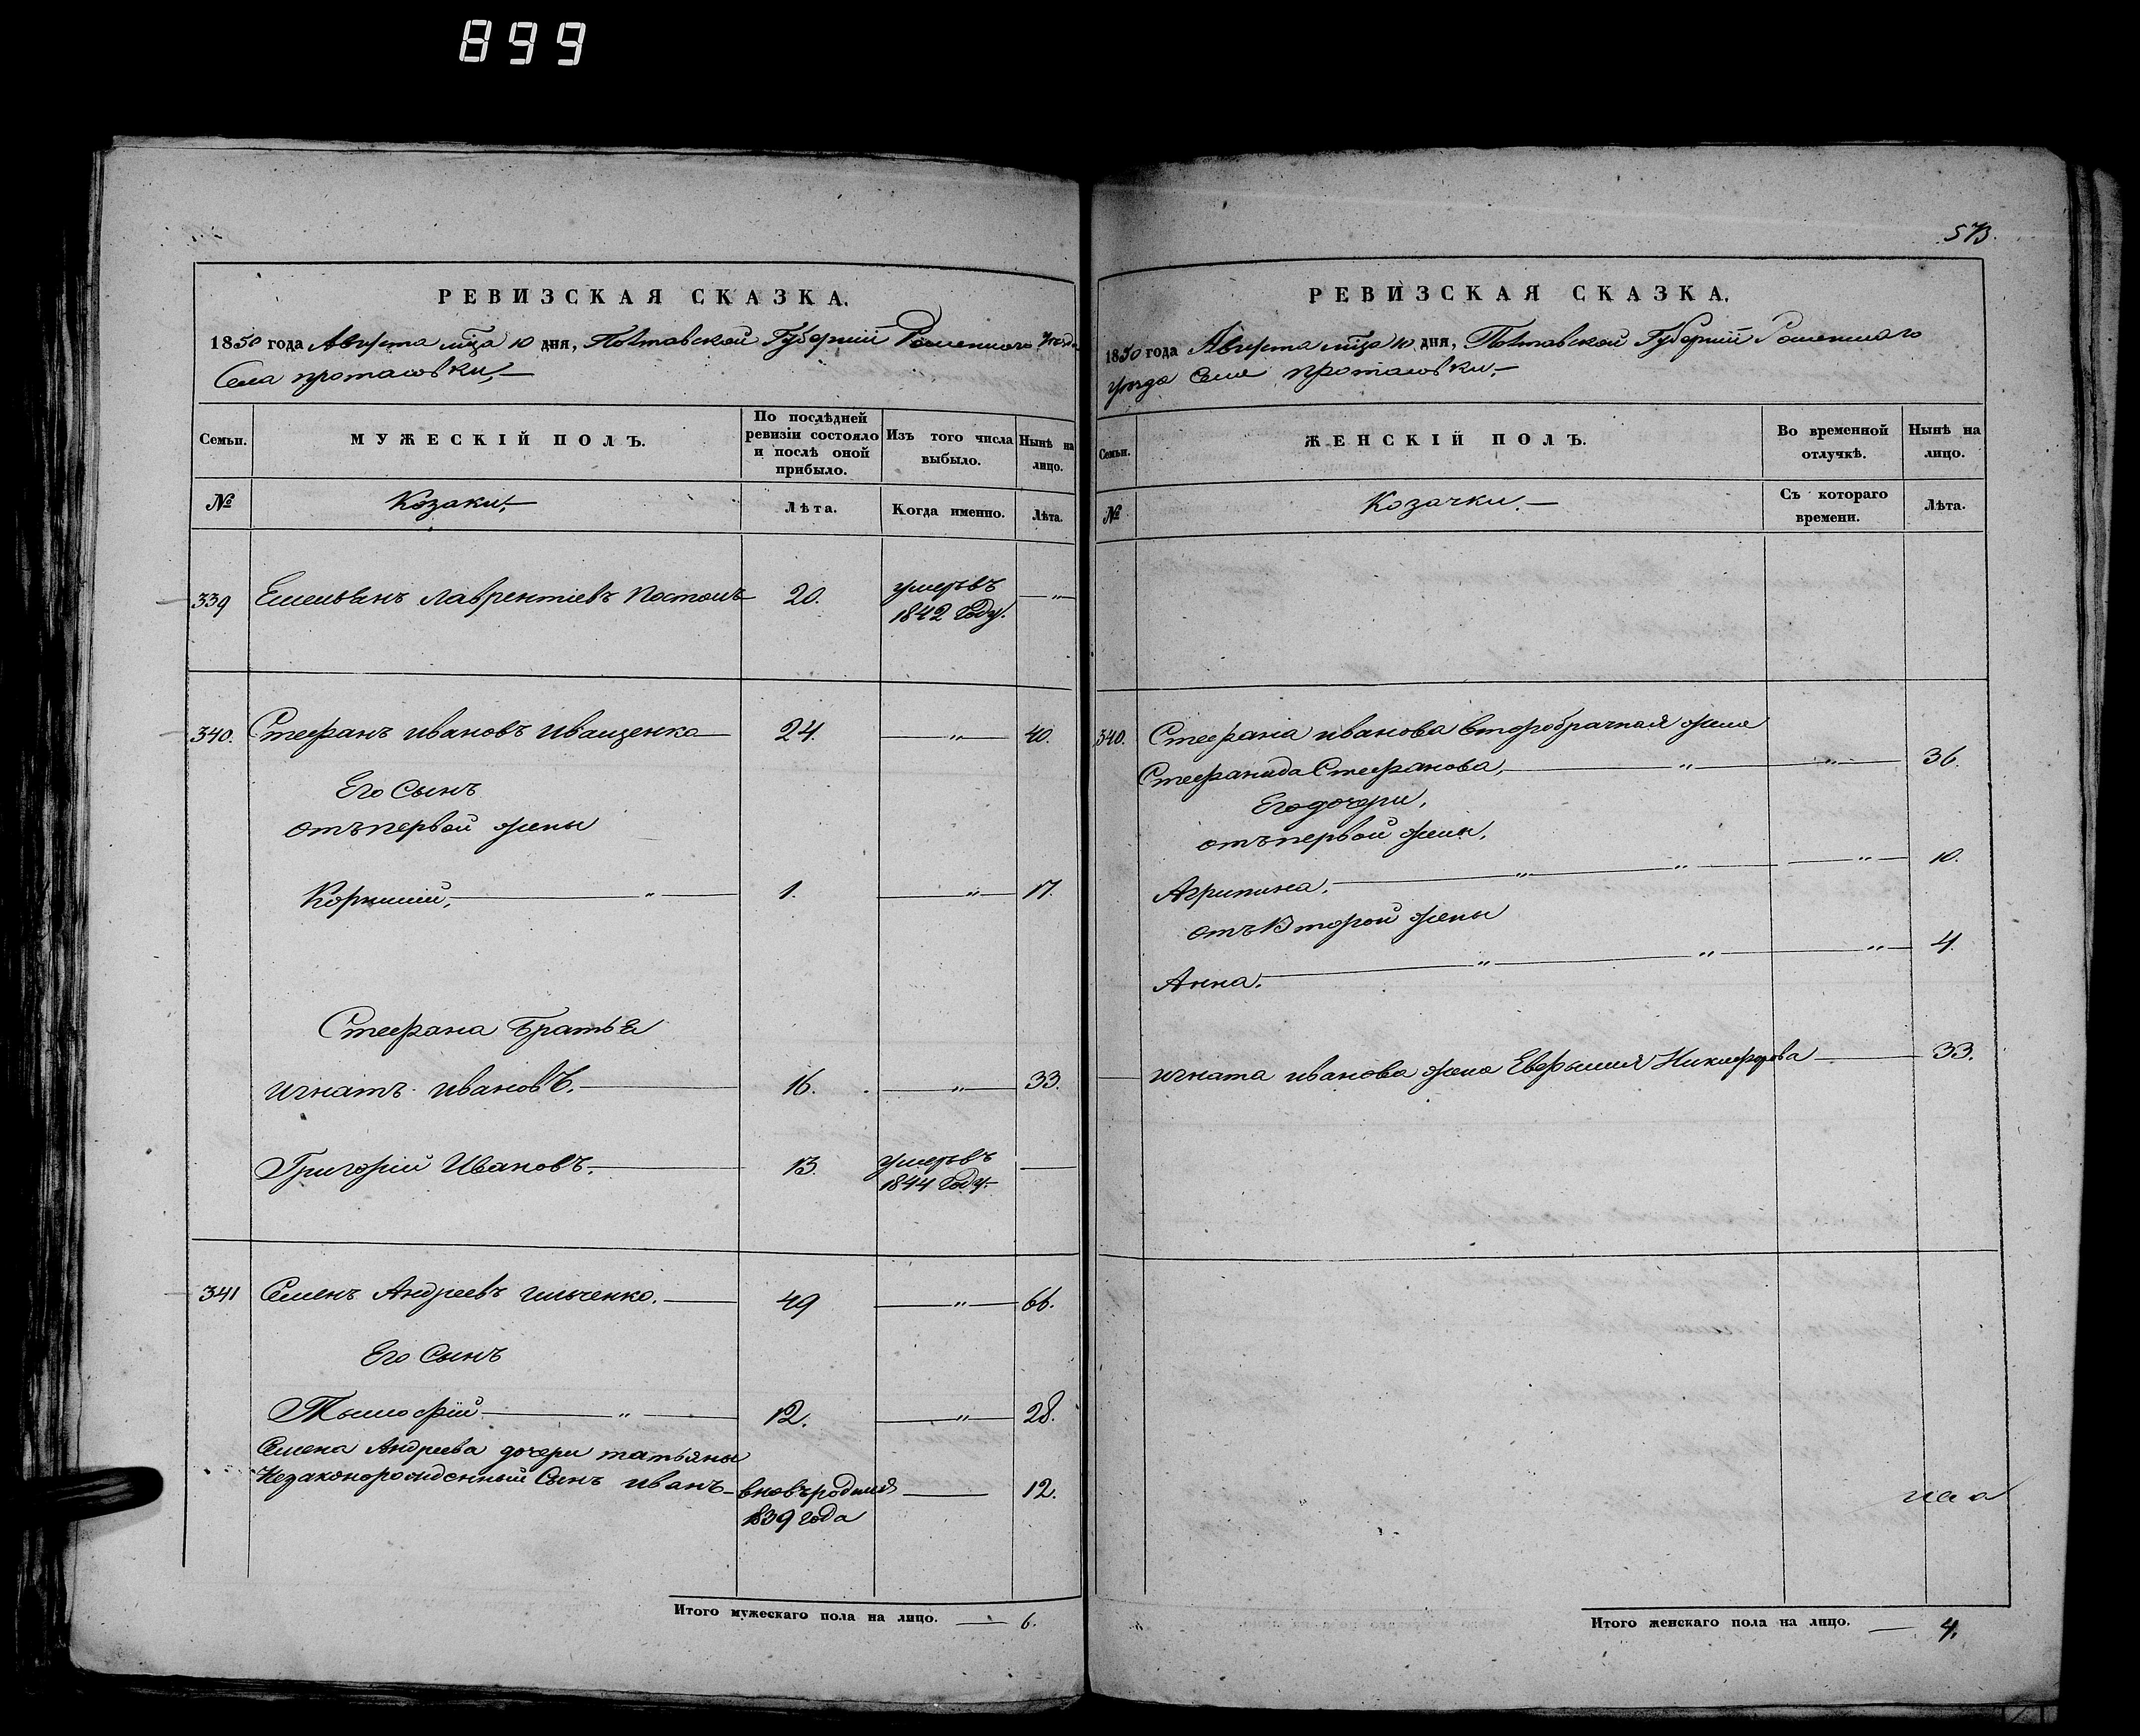 899
РЕВИЗСКАЯ СКАЗКА.
1850 года Августа мца 10 дня, Полтавской Губерніи Роменского уезда
Села протасовки,
Семьи.
МУЖЕСКІЙ ПОЛЪ.
По послѣдней ревизіи состояло и послѣ оной прибыло.
Изъ того числа выбыло.
Нынѣ на лицо.
№
Козаки,
Лѣта.
Когда именно.
Лѣта.
339 Емельянъ лаврентіевъ Постолъ 20. умеръ въ 1842 году. — „ —
340. Стефанъ ивановъ иващенко 24. — „ — 40.
Его Сынъ
отъ первой жены
Корнилий, — „ — 1. — „ — 17.
Стефана Братья
игнатъ ивановъ. — 16. — „ — 33.
Григорій Ивановъ. — 13. умеръ въ 1844 году. —
341 Семенъ Андреевъ ильченко. — 49 — „ — 66.
Его Сынъ
Тимофій — „ — 12. — „ — 28.
Семена Андреева дочери татьяны
Незаконорожденный Сынъ иванъ — вновь родился — 12.
1839 года
Итого мужескаго пола на лицо. — 6.
573.
РЕВИЗСКАЯ СКАЗКА.
1850 года Августа мца 10 дня, Полтавской Губерніи Роменского
уезда Села протасовки,
Семьи.
ЖЕНСКІЙ ПОЛЪ.
Во временной отлучкѣ.
Нынѣ на лицо.
№
Козачки.
Съ котораго времени.
Лѣта.
340. Стефана иванова второбрачная жена
Стефанида Стефанова, — „ — „ — 36.
Его дочери,
отъ первой жены,
Агрипина. — „ — „ — „ — 10.
отъ Второй жены
Анна. — „ — „ — „ — 4.
игната иванова жена Евфимия Никифорова — 33.
Итого женскаго пола на лицо. — 4.